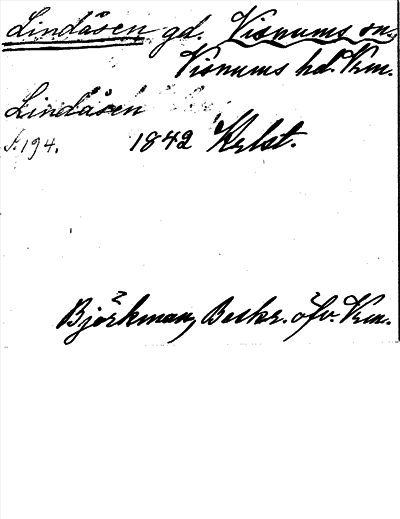 Lindåsen gd. Visnums sn.,
Visnums hd. Vrm.
Lindåsen
s. 194. 1842 Krlst.
Björkman, Beskr. öfv. Vrm.